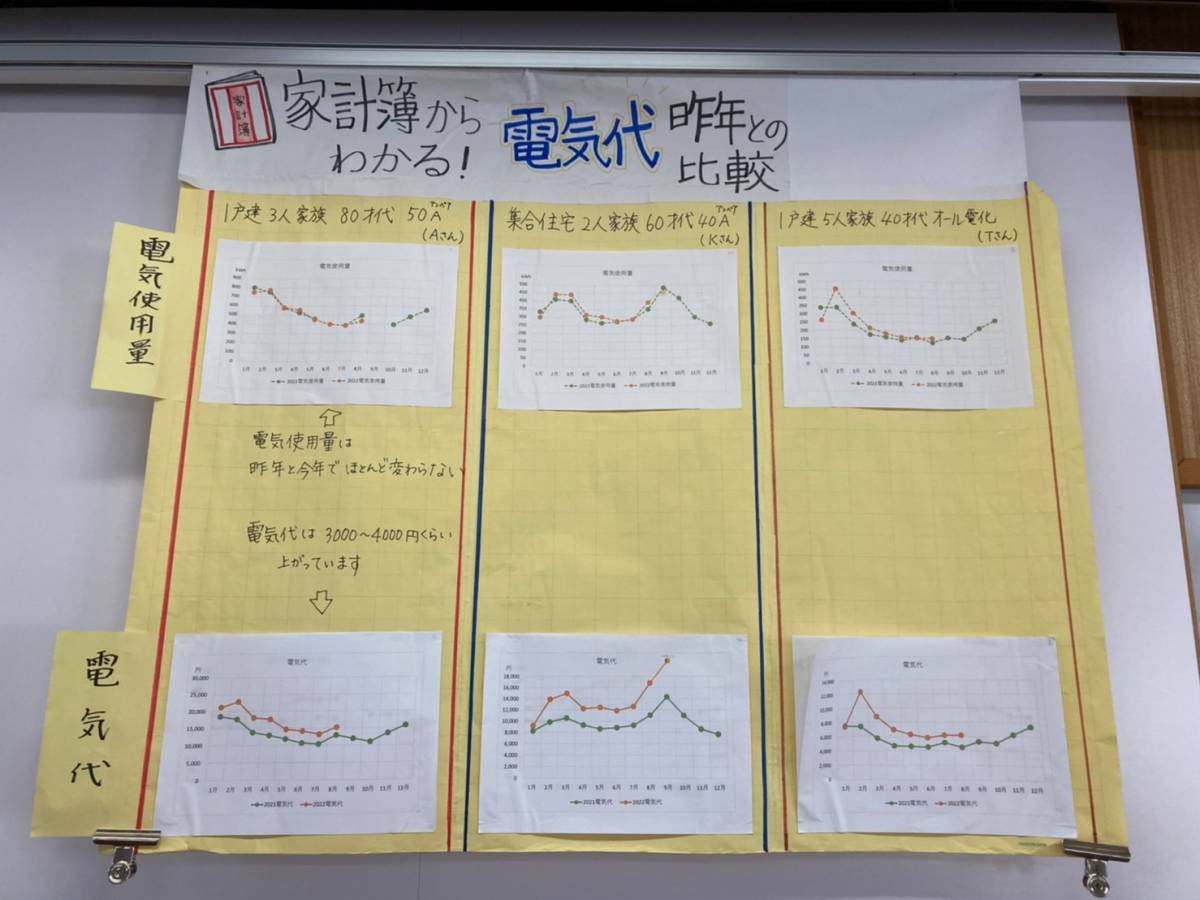 家計簿
家計簿から
わかる！
電気代
昨年との
比較
電気使用量
1戸建 3人家族 80才代 50A
アンペア
(Aさん)
集合住宅 2人家族 60才代 40A
アンペア
(Kさん)
1戸建 5人家族 40才代 オール電化
(Tさん)
電気使用量
kWh
900
800
700
600
500
400
300
200
100
0
1月 2月 3月 4月 5月 6月 7月 8月 9月 10月 11月 12月
2021電気使用量 2022電気使用量
電気使用量
kWh
500
450
400
350
300
250
200
150
100
50
0
1月 2月 3月 4月 5月 6月 7月 8月 9月 10月 11月 12月
2021電気使用量 2022電気使用量
電気使用量
kWh
500
450
400
350
300
250
200
150
100
50
0
1月 2月 3月 4月 5月 6月 7月 8月 9月 10月 11月 12月
2021電気使用量 2022電気使用量
電気使用量は
昨年と今年でほとんど変わらない
電気代は 3000～4000円くらい
上がっています
電気代
電気代
円
30,000
25,000
20,000
15,000
10,000
5,000
0
1月 2月 3月 4月 5月 6月 7月 8月 9月 10月 11月 12月
2021電気代 2022電気代
電気代
円
18,000
16,000
14,000
12,000
10,000
8,000
6,000
4,000
2,000
0
1月 2月 3月 4月 5月 6月 7月 8月 9月 10月 11月 12月
2021電気代 2022電気代
電気代
円
14,000
12,000
10,000
8,000
6,000
4,000
2,000
0
1月 2月 3月 4月 5月 6月 7月 8月 9月 10月 11月 12月
2021電気代 2022電気代